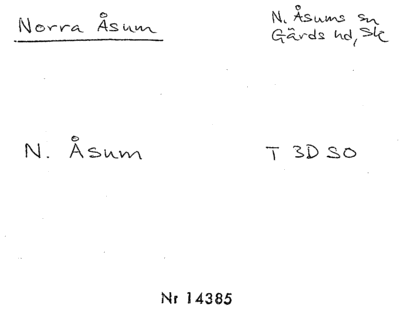 Norra Åsum
N. Åsums sn
Gärds hd, Sk
N. Åsum
T 3D SO
Nr 14385